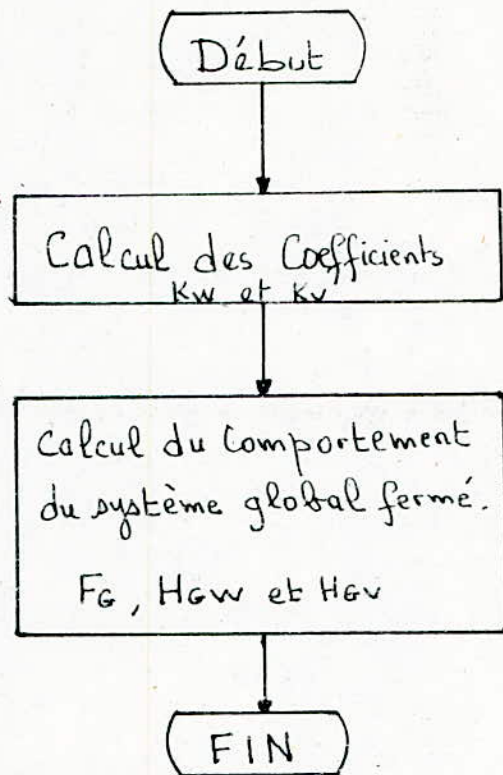 Début
Calcul des Coefficients
Kw et Kv
Calcul du Comportement
du système global fermé.
FG, HGW et HGV
FIN